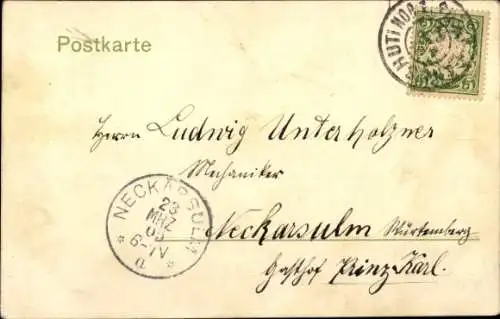 Postkarte
Herrn Ludwig Unterholzner
Mechaniker
Neckarsulm Württemberg
Gasthof Prinz Karl.
NECKARSULM
23
MRZ
6-7V
5